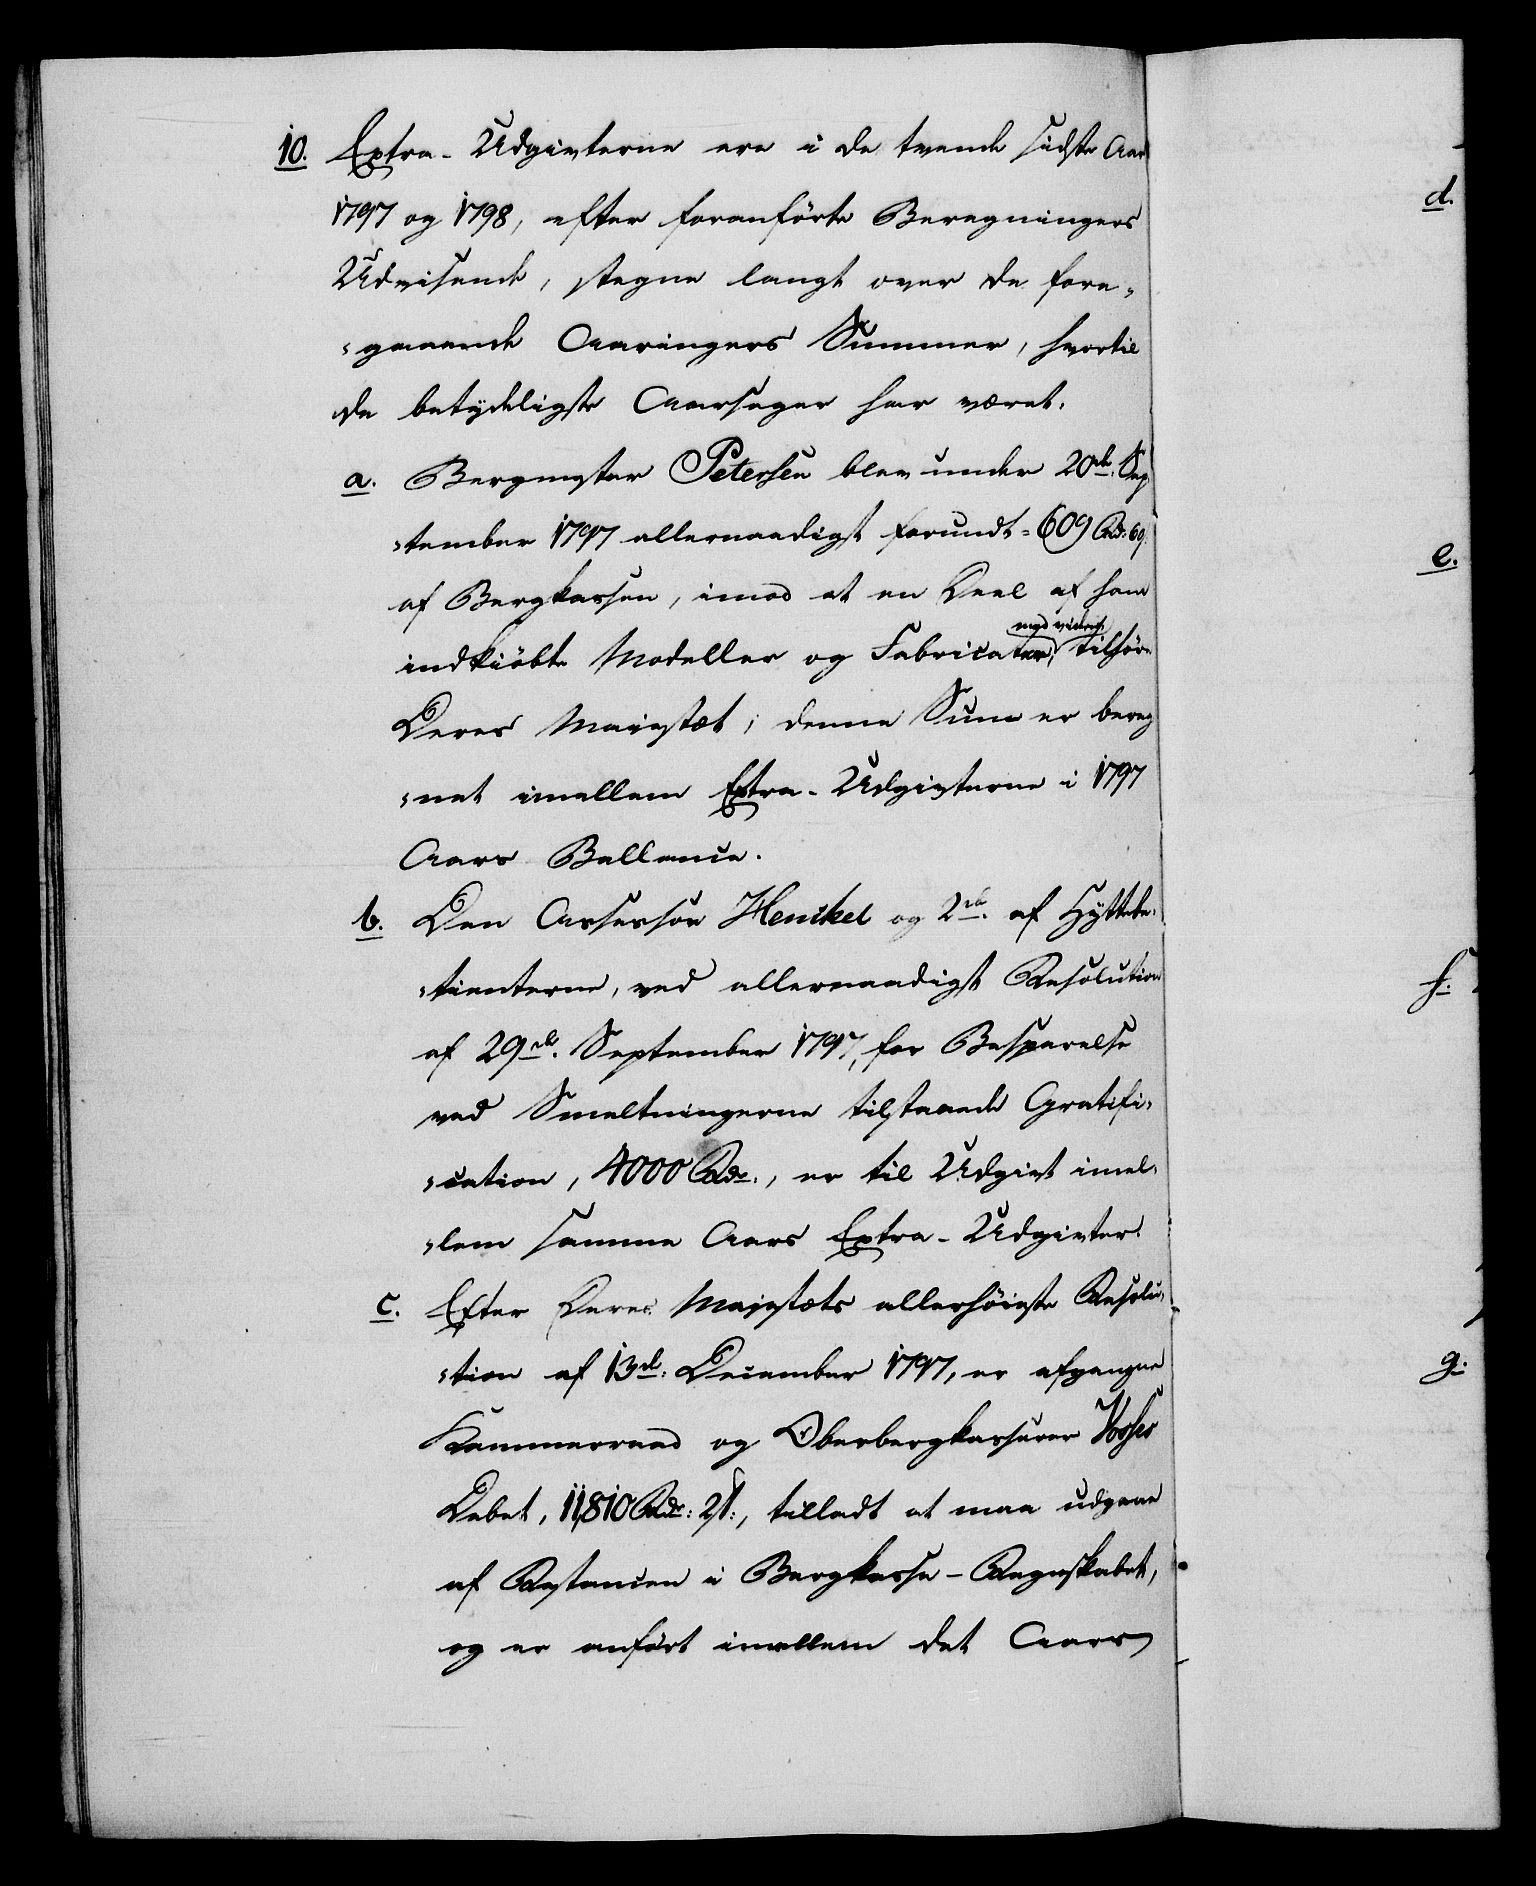 10. Extra-Udgivterne ere i de tvende sidste Aar
1797 og 1798, efter foranförte Beregningers
Udvisende, stegne langt over de fore-
-gaaende Aaringers Summer, hvortil
de betydeligste Aarsager har været.
a. Bergmester Petersen blev under 20de Sep
-tember 1797 allernaadigst forundt = 609 Rdr. 69.
af Bergkassen, imod at en Deel af ham
med videre
indkiöbte Modeller og Fabricater, tilhöre
Deres Maiestæt; denne Sum er bereg
-net imellem Extra-Udgivterne i 1797
Aars Ballance.
b. Den Assessor Henckel og 2de af Hyttebe-
-tienterne, ved allernaadigst Resolution
af 29de September 1797, for Besparelse
ved Smeltningerne tilstaaede Gratifi-
-cation, 4000 Rdr., er til Udgivt imel-
-lem samme Aars Extra-Udgivter.
c. Efter Deres Majestæts allerhöieste Resolu-
-tion af 13de December 1797, er afgangne
Kammerraad og Oberbergkasserer Vosses
Debet, 11,810 Rdr. 2 s:, tilladt at maa udgaae
af Restancen i Bergkasse-Regnskabet,
og er anfört imellem det Aars
d.
e.
f.
g.